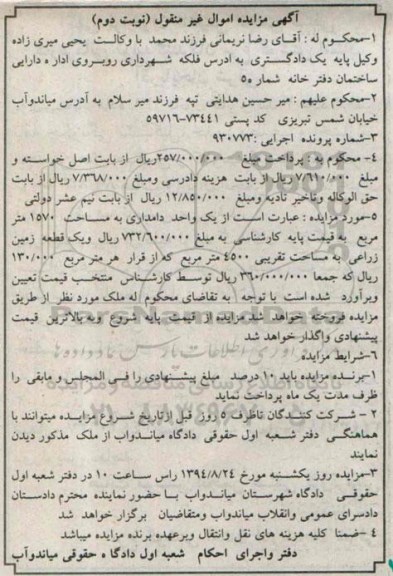 آگهی مزایده اموال غیر منقول (نوبت دوم)
۱-محکوم له : آقای رضا نریمانی فرزند محمد با وکالت یحیی میری زاده
وکیل پایه یک دادگستری به آدرس فلکه شهرداری روبروی اداره دارایی
ساختمان دفتر خانه شماره ۵
۲-محکوم علیهم : میر حسین هدایتی تپه فرزند میر سلام به آدرس میاندوآب
خیابان شمس تبریزی کد پستی ۷۳۴۴۱-۵۹۷۱۶
۳-شماره پرونده اجرایی :۹۳۰۷۷۳
۴- محکوم به : پرداخت مبلغ ۲۵۷/۰۰۰/۰۰۰ریال از بابت اصل خواسته و
مبلغ ۷/۶۱۰/۰۰۰ ریال از بابت هزینه دادرسی ومبلغ ۷/۳۶۸/۰۰۰ ریال از بابت
حق الوکاله وتاخیر تادیه ومبلغ ۱۲/۸۵۰/۰۰۰ ریال از بابت نیم عشر دولتی
۵-مورد مزایده : عبارت است از یک واحد دامداری به مساحت ۱۵۷۰ متر
مربع به قیمت پایه کارشناسی به مبلغ ۷۳۲/۶۰۰/۰۰۰ ریال ویک قطعه زمین
زراعی به مساحت تقریبی ۴۵۰۰ متر مربع که از قرار هر متر مربع ۱۳۰/۰۰۰
ریال که جمعا ۳۶۰/۰۰۰/۰۰۰ ریال توسط کارشناس منتخب قیمت تعیین
وبرآورد شده است با توجه به تقاضای محکوم له ملک مورد نظر از طریق
مزایده فروخته خواهد شد مزایده از قیمت پایه شروع وبه بالاترین قیمت
پیشنهادی واگذار خواهد شد
۶-شرایط مزایده
۱-برنده مزایده باید ۱۰ درصد مبلغ پیشنهادی را فی المجلس و مابقی را
ظرف مدت یک ماه پرداخت نماید
۲ - شرکت کنندگان تاظرف ۵ روز قبل ازتاریخ شروع مزایده میتوانند با
هماهنگی دفتر شعبه اول حقوقی دادگاه میاندواب از ملک مذکور دیدن
نمایند
۳-مزایده روز یکشنبه مورخ ۱۳۹۴/۸/۲۴ راس ساعت ۱۰ در دفتر شعبه اول
حقوقی دادگاه شهرستان میاندواب با حضور نماینده محترم دادستان
دادسرای عمومی وانقلاب میاندواب ومتقاضیان برگزار خواهد شد
۴ -ضمنا کلیه هزینه های نقل وانتقال وبرعهده برنده مزایده میباشد
دفتر واجرای احکام شعبه اول دادگاه حقوقی میاندوآب